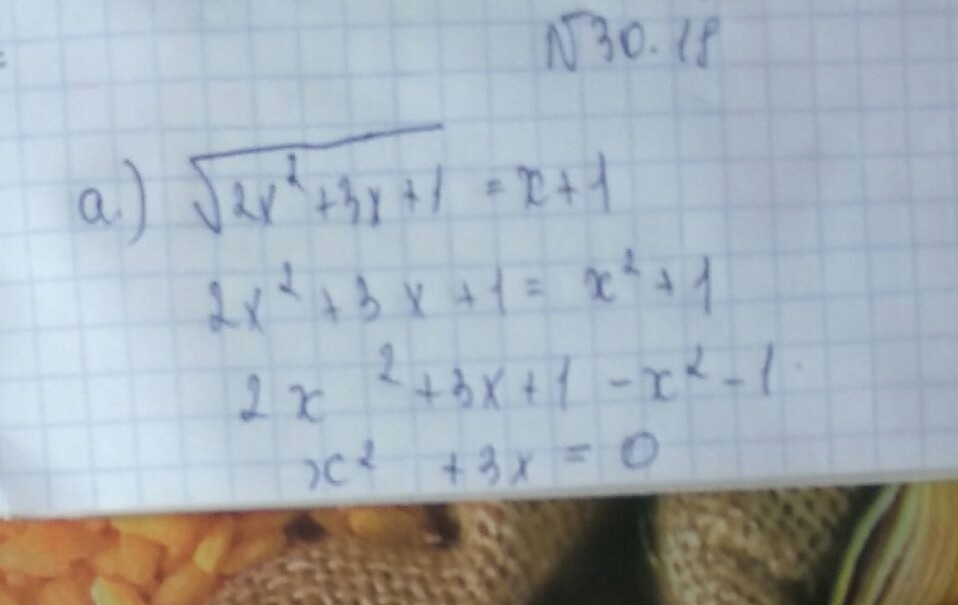 №30.18
а.) √2x²+3x+1 = x+1
2x² + 3x + 1 = x² + 1
2x² +3x+1 -x² -1
x² +3x = 0